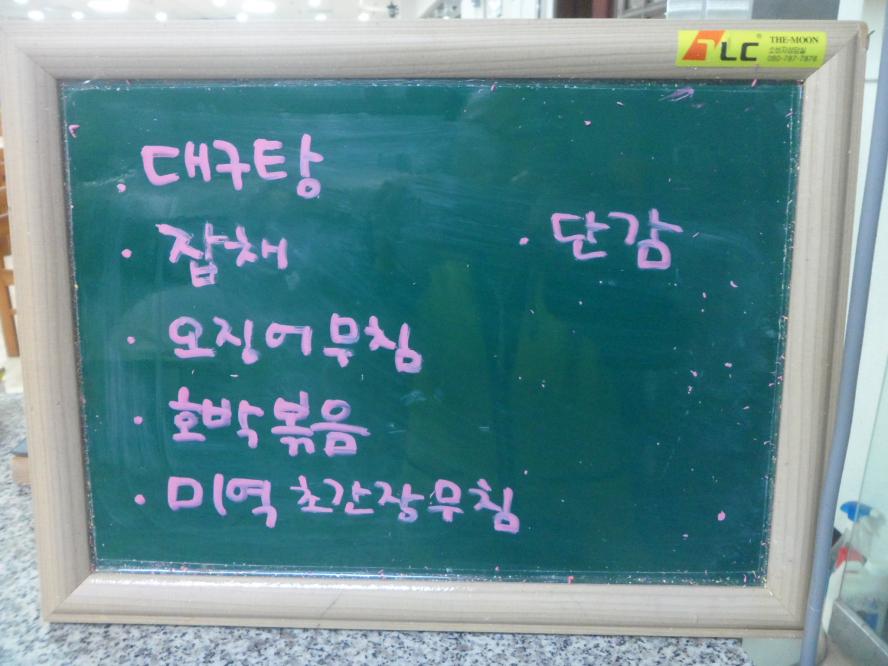 TLC THE-MOON
소비자상담실
080-787-7878
· 대구탕
· 잡채
· 오징어무침
· 호박볶음
· 미역초간장무침
· 단감